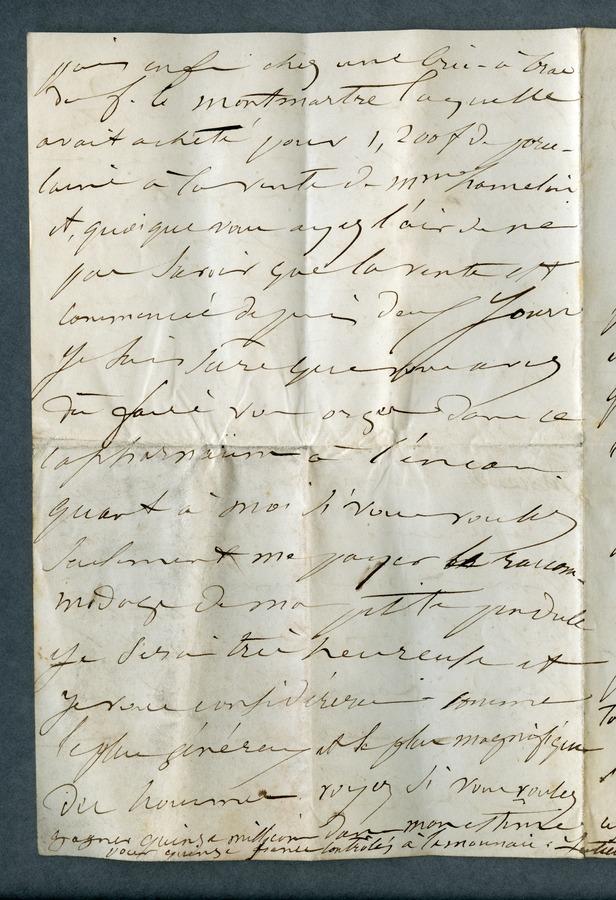 puis enfin chez une bric-à-brac
du f. g. montmartre laquelle
avait acheté pour 1,200f de porce-
laine à la vente de mme hamelin
et, quoique vous ayez l'air de ne
pas savoir que la vente est
commencée depuis deux jours
je suis sûre que vous avez
dû faire vos orges dans ce
capharnaüm à l'encan
quant à moi si vous voulez
seulement me payer le raccom-
modage de ma petite pendule
je serai très heureuse et
je vous considérerai comme
le plus généreux et le plus magnifique
des hommes voyez si vous voulez
gagner quinze millions dans mon estime
pour quinze francs contrôlés à la monnaie